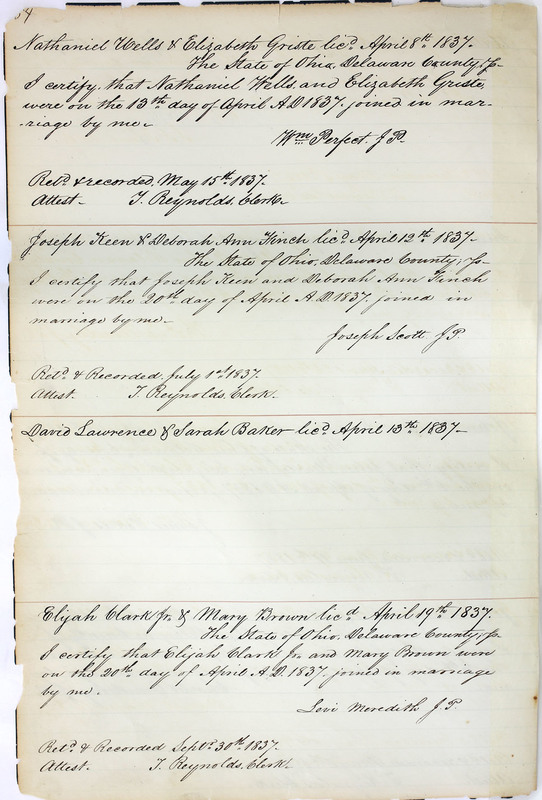 54
Nathaniel Wells & Elizabeth Griste licd. April 8th. 1837.
The State of Ohio, Delaware County, ss-
I certify, that Nathaniel Wells, and Elizabeth Griste,
were on the 13th day of April A.D 1837. joined in mar-
-riage by me-
Wm Perfect. J P.
Retd. & recorded. May 15th. 1837.
Attest- T. Reynolds, Clerk-
Joseph Keen & Deborah Ann Finch licd. April 12th. 1837-
The State of Ohio, Delaware County, ss-
I certify that Joseph Keen and Deborah Ann Finch
were on the 20th day of April A.D. 1837. joined in
marriage by me-
Joseph Scott J.P.
Retd. & Recorded. July 1st 1837.
Attest. T. Reynolds, Clerk.
David Lawrence & Sarah Baker licd. April 13th. 1837-
Elijah Clark Jr. & Mary Brown licd April 19th. 1837.
The State of Ohio, Delaware County, ss-
I certify that Elijah Clark Jr. and Mary Brown were
on the 20th. day of April A.D. 1837. joined in marriage
by me.
Levi Meredith J.P.
Retd. & Recorded Sept. 30th. 1837.
Attest- T. Reynolds, Clerk.